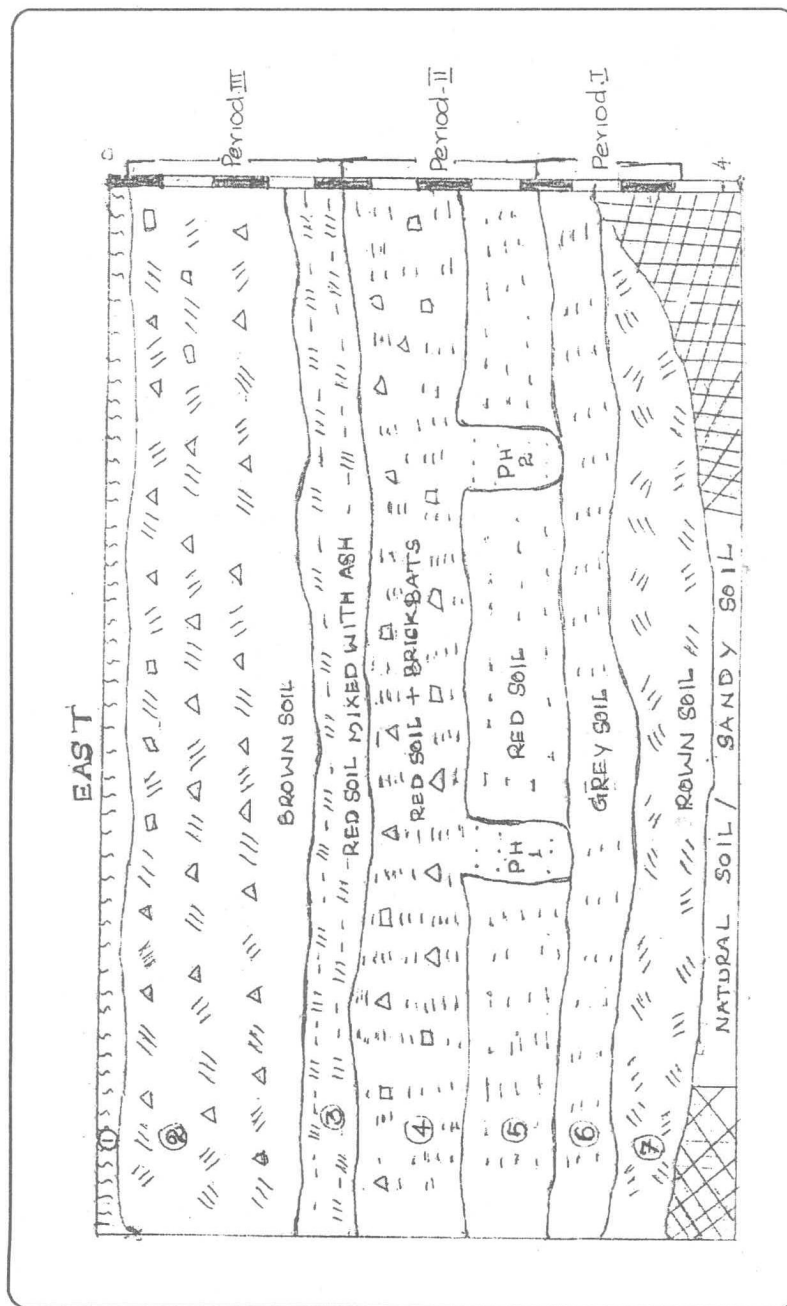 EAST
0
Period III
Period-II
Period-I
4
①
②
BROWN SOIL
③
RED SOIL MIXED WITH ASH
④
RED SOIL + BRICKBATS
⑤
PH
1
RED SOIL
PH
2
⑥
GREY SOIL
⑦
ROWN SOIL
NATURAL SOIL / SANDY SOIL